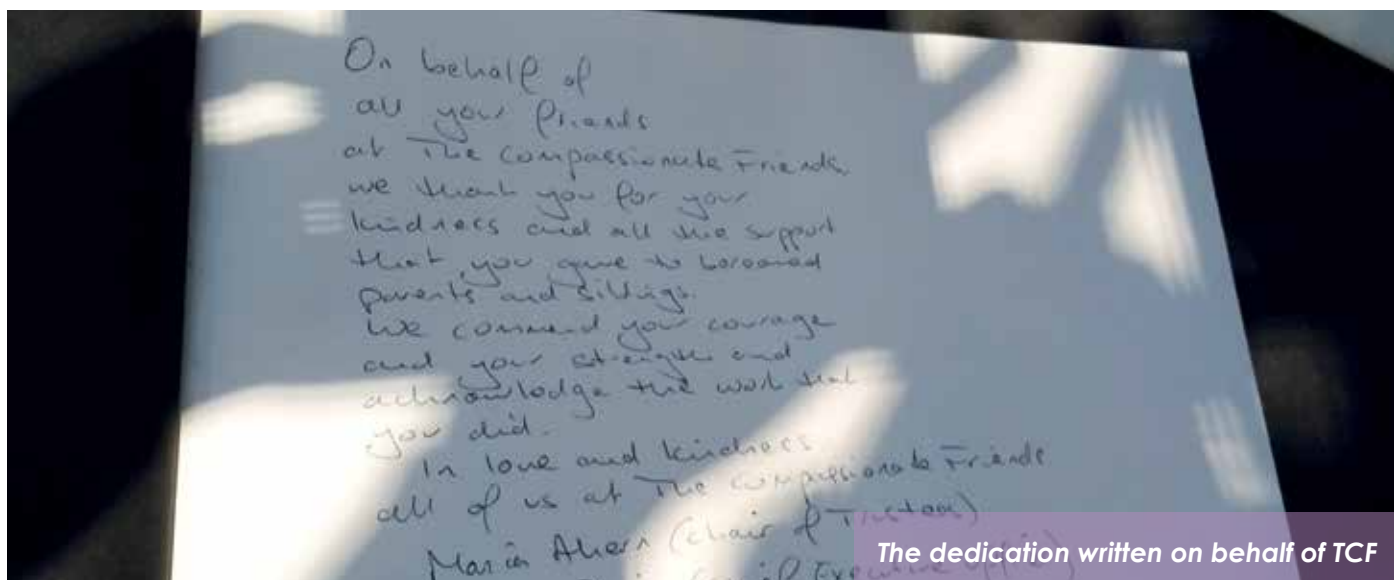 On behalf of
all your friends
at The Compassionate Friends
we thank you for your
kindness and all the support
that you gave to bereaved
parents and siblings.
We commend your courage
and your strength and
acknowledge the work that
you did.
In love and kindness
all of us at The Compassionate Friends
Maria Ahern (Chair of Trustees)
Executive
The dedication written on behalf of TCF